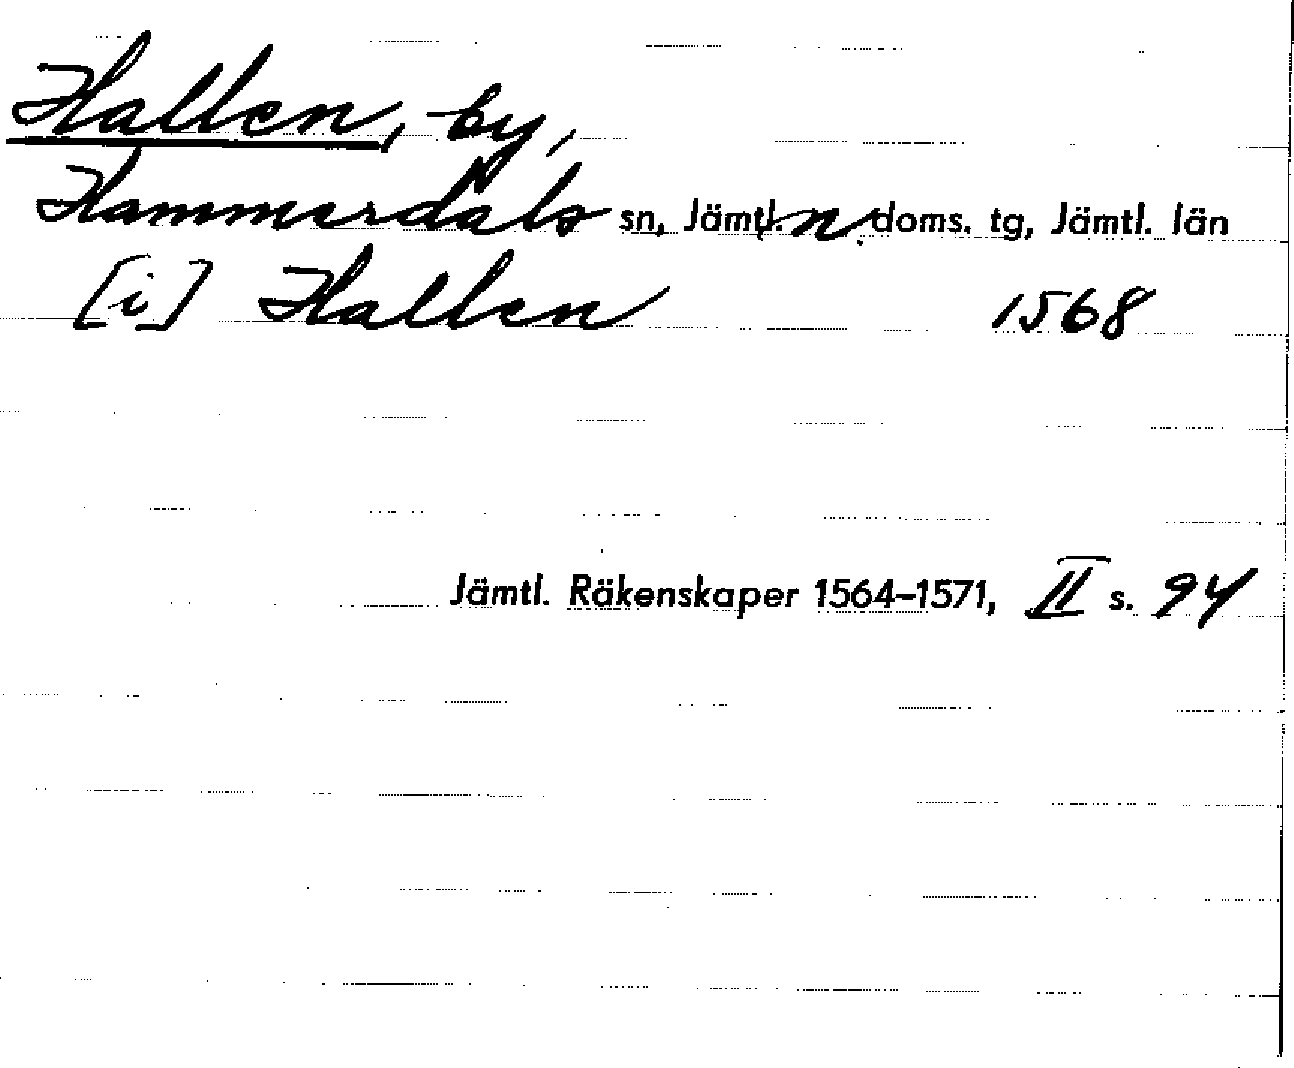 Hallen, by,
Hammerdals sn, Jämtl. n. doms. tg, Jämtl. län
[i] Hallen 1568
Jämtl. Räkenskaper 1564–1571, II s. 94